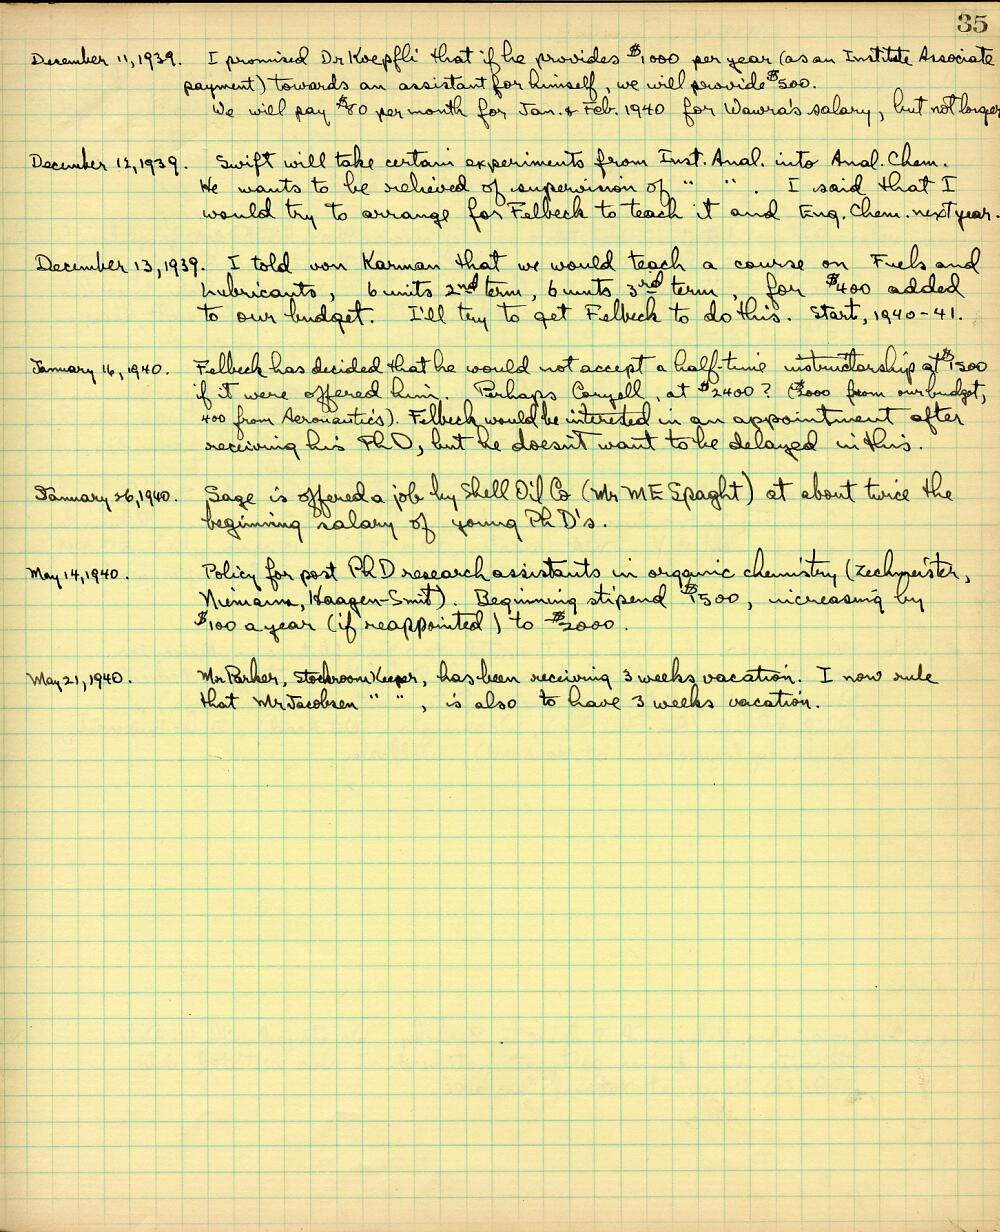 35
December 11, 1939. I promised Dr Koepfli that if he provides $1000 per year (as an Institute Associate
payment) towards an assistant for himself, we will provide $500.
We will pay $80 per month for Jan. & Feb. 1940 for Wawra's salary, but not longer
December 12, 1939. Swift will take certain experiments from Inst. Anal. into Anal. Chem.
He wants to be relieved of supervision of " " . I said that I
would try to arrange for Felbeck to teach it and Eng. Chem. next year.
December 13, 1939. I told von Karman that we would teach a course on Fuels and
Lubricants, 6 units 2nd term, 6 units 3rd term, for $400 added
to our budget. I'll try to get Felbeck to do this. Start, 1940-41.
January 16, 1940. Felbeck has decided that he would not accept a half-time instructorship at $1500
if it were offered him. Perhaps Coryell, at $2400? ($2000 from our budget,
400 from Aeronautics). Felbeck would be interested in an appointment after
receiving his PhD, but he doesn't want to be delayed in this.
January 26, 1940. Sage is offered a job by Shell Oil Co (Mr M E Spaght) at about twice the
beginning salary of young PhD's.
May 14, 1940. Policy for post PhD research assistants in organic chemistry (Zechmeister,
Niemann, Haagen-Smit). Beginning stipend $1500, increasing by
$100 a year (if reappointed) to $2000.
May 21, 1940. Mr Parker, Stockroom Keeper, has been receiving 3 weeks vacation. I now rule
that Mr Jacobsen " " , is also to have 3 weeks vacation.